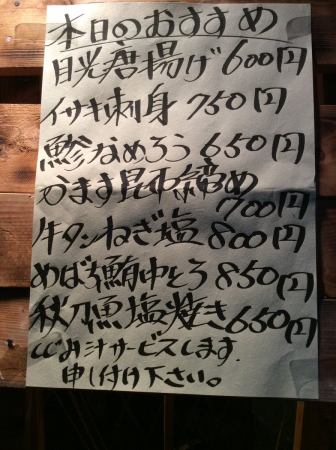 本日のおすすめ
目光唐揚げ 600円
イサキ刺身 750円
鯵なめろう 650円
かます昆布締め
700円
牛タンねぎ塩 800円
めばち鮪中とろ 850円
秋刀魚塩焼き 650円
しじみ汁サービスします.
申し付け下さい。